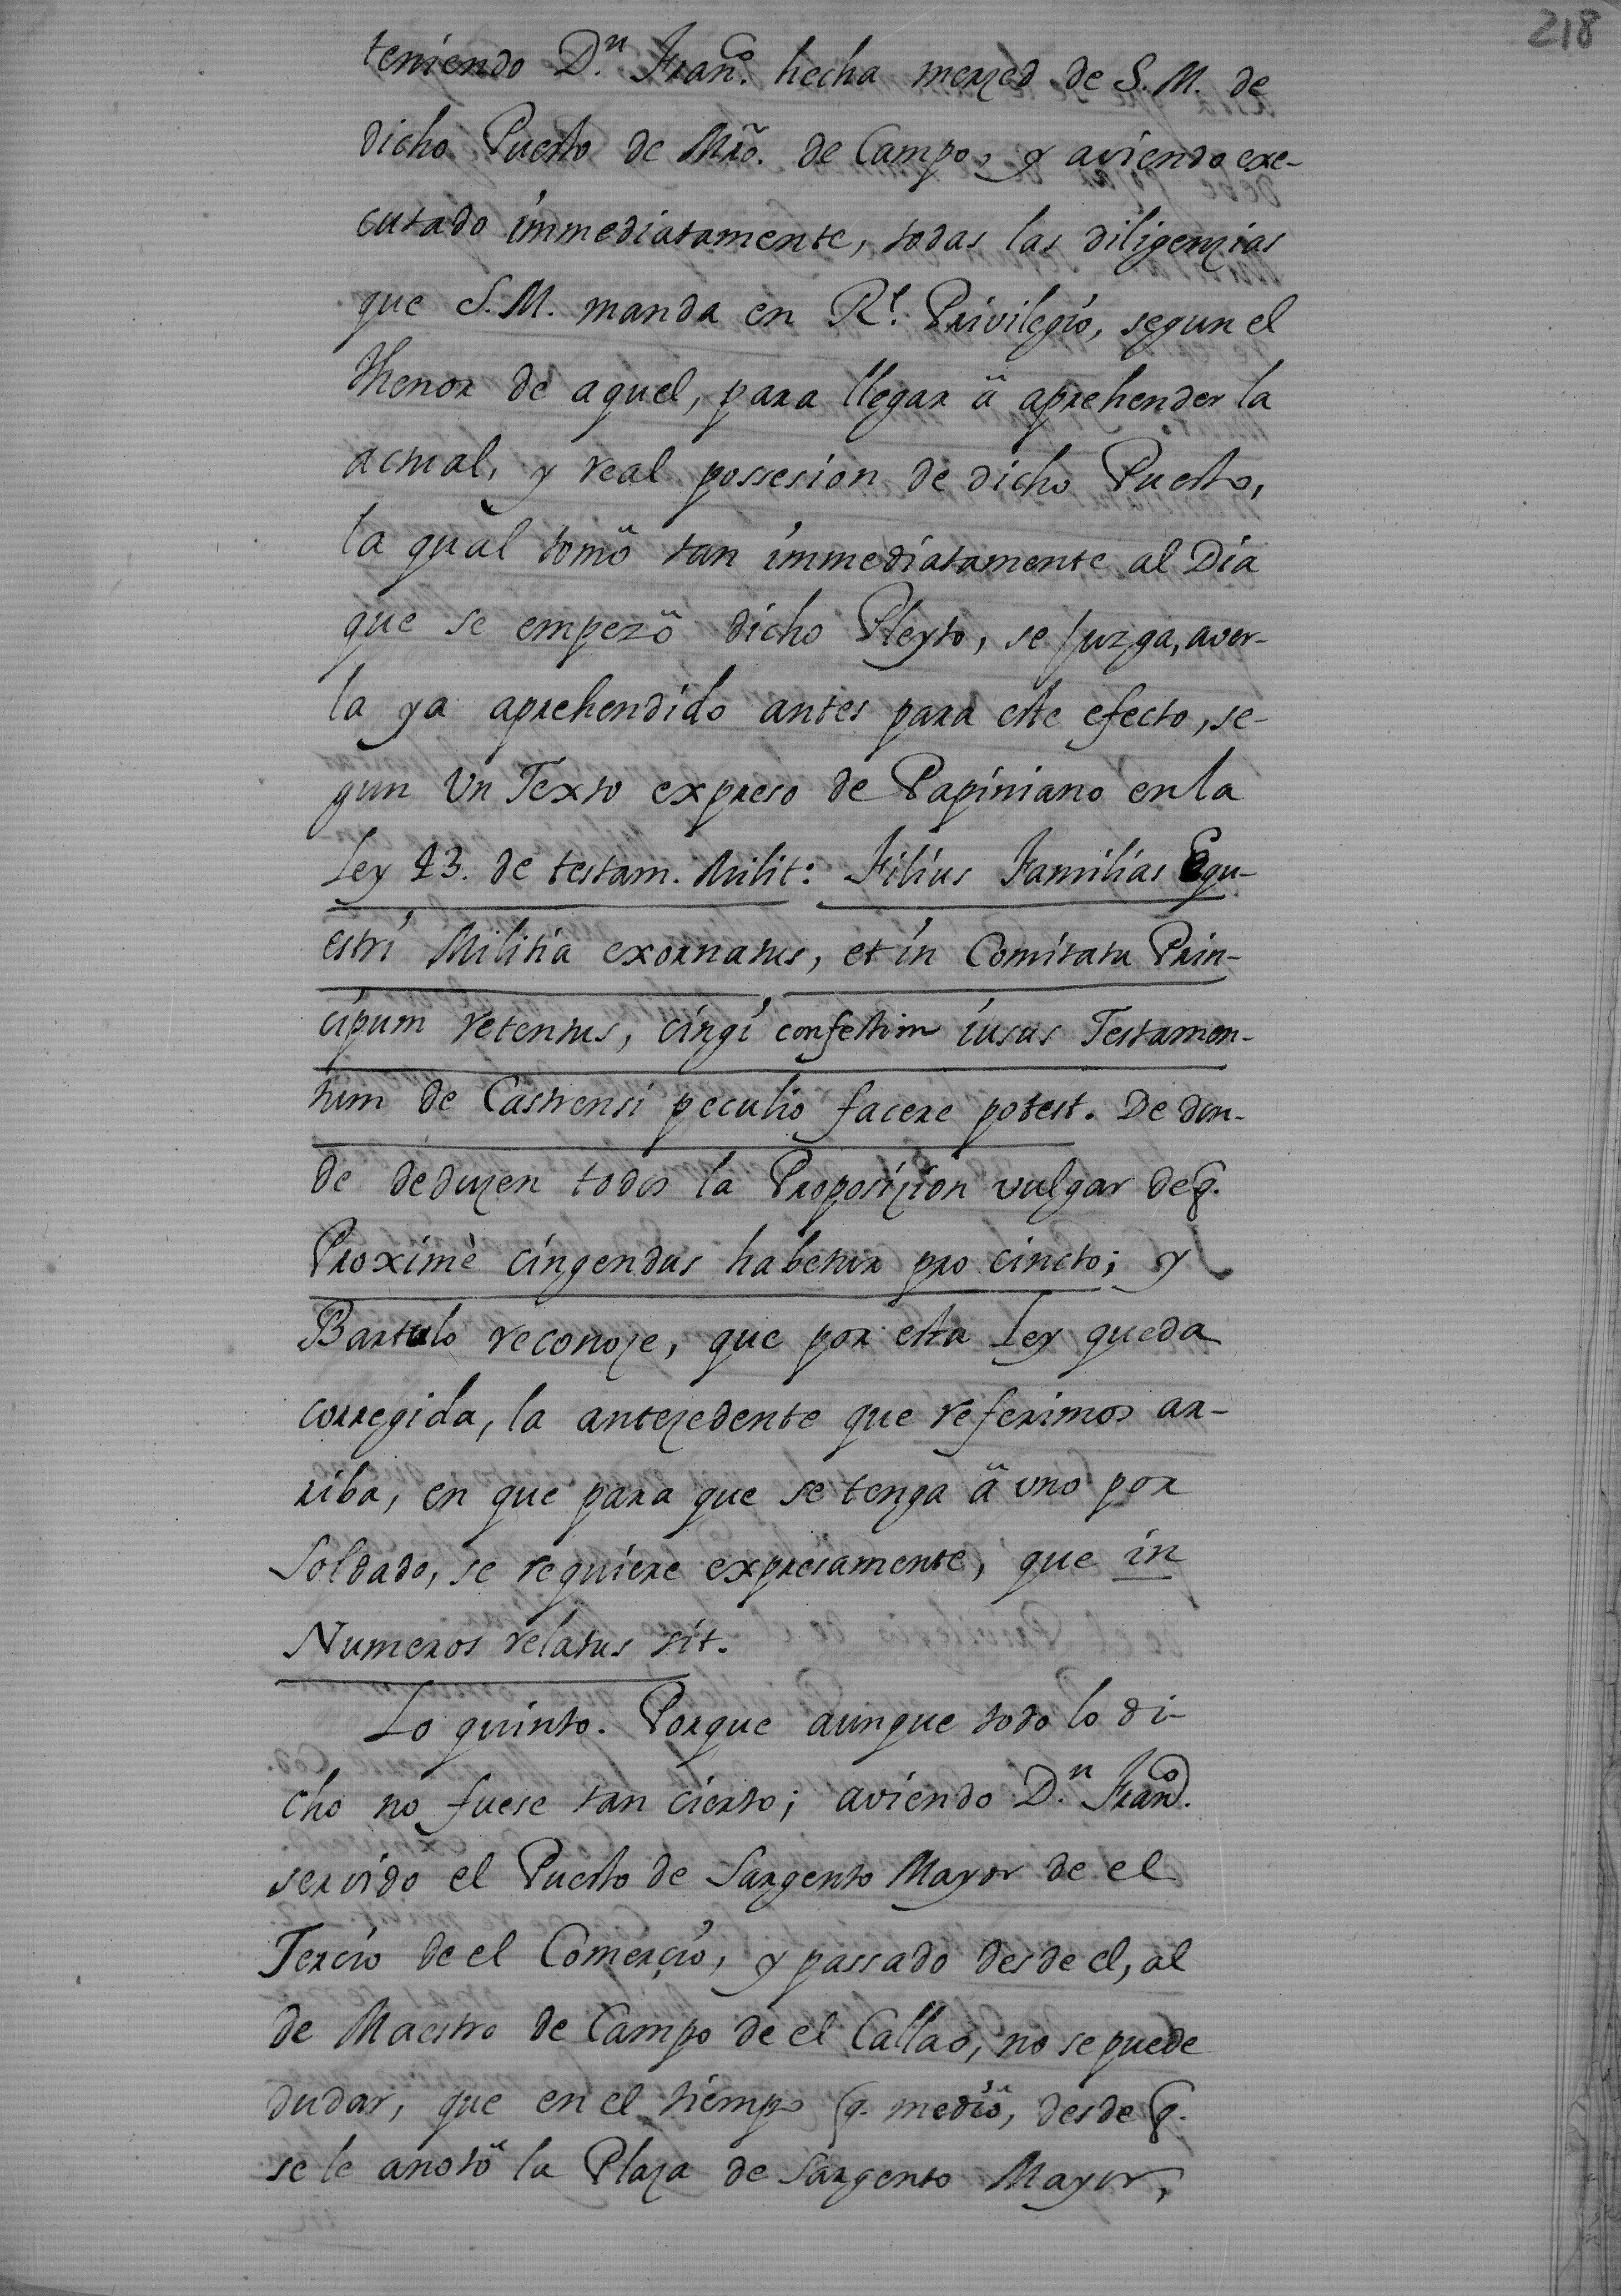 218
teniendo D.ⁿ Fran.ᶜᵒ hecha merzed de S.M. de
dicho Puesto de Mr̃o. de Campo, y aviendo exe-
cutado immediatamente, todas las diligenzias
que S.M. manda en R.ˡ Privilegio, segun el
thenor de aquel, para llegar â aprehender la
actual, y real possesion de dicho Puesto,
la qual tomô tan immediatamente al Dia
que se empezô dicho Pleyto, se juzga, aver-
la ya aprehendido antes para este efecto, se-
gun Vn Texto expreso de Papiniano en la
Ley 43. de testam. Milit: Filius Familias Equ-
estri Militia exornatus, et in Comitatu Prin-
cipum retentus, cingi confestim iusus Testamen-
tum de Castrensi peculio facere potest. De don-
de deduzen todos la Proposizion vulgar de q.
Proximè cingendus habetur pro cincto; y
Bartulo reconoze, que por esta Ley queda
corregida, la antezedente que referimos ar-
riba, en que para que se tenga â vno por
Soldado, se requiere expresamente, que in
Numeros relatus sit.
Lo quinto. Porque aunque todo lo di-
cho no fuese tan cierto; aviendo D.ⁿ Fran.ᶜᵒ
servido el Puesto de Sargento Mayor de el
Tercio de el Comerçio, y passado desde el, al
de Maestro de Campo de el Callao, no se puede
dudar, que en el tiempo q. mediô, desde q.
se le anotô la Plaza de Sargento Mayor,